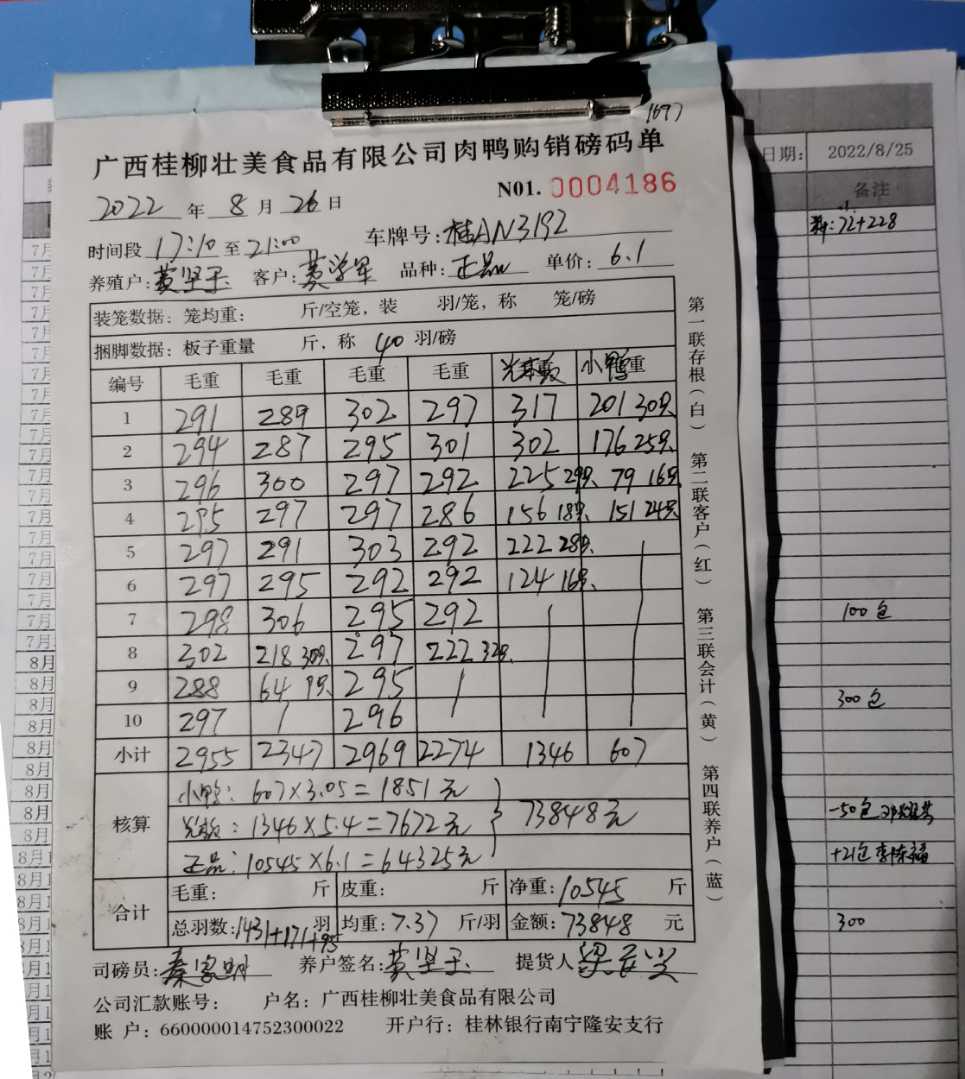 1697
广西桂柳壮美食品有限公司肉鸭购销磅码单
N01. 0004186
2022 年 8 月 26 日
时间段 17:10 至 21:00 车牌号: 桂AN3192
养殖户: 黄坚玉 客户: 蒙学军 品种: 正品 单价: 6.1
装笼数据: 笼均重: 斤/空笼, 装 羽/笼, 称 笼/磅
捆脚数据: 板子重量 斤, 称 40 羽/磅
编号 毛重 毛重 毛重 毛重 小鸭重
1 291 289 302 297 317 201 30只
2 294 287 295 301 302 176 25只
3 296 300 297 292 225 29只 79 16只
4 295 297 297 286 156 18只 151 24只
5 297 291 303 292 222 28只
6 297 295 292 292 124 16只
7 298 306 295 292
8 302 218 30只 297 222 32只
9 288 64 9只 295
10 297 296
小计 2955 2347 2969 2274 1346 607
小鸭: 607×3.05=1851元
核算 1346×5.4=7672元 73848元
正品: 10545×6.1=64325元
合计 毛重: 斤 皮重: 斤 净重: 10545 斤
总羽数: 1431+171+95 羽 均重: 7.37 斤/羽 金额: 73848 元
司磅员: 秦家明 养户签名: 黄坚玉 提货人
公司汇款账号: 户名: 广西桂柳壮美食品有限公司
账 户: 660000014752300022 开户行: 桂林银行南宁隆安支行
第一联存根(白) 第二联客户(红) 第三联会计(黄) 第四联养户(蓝)
日期: 2022/8/25
备注
72+228
100包
300包
-50包
+21包 李陈福
300